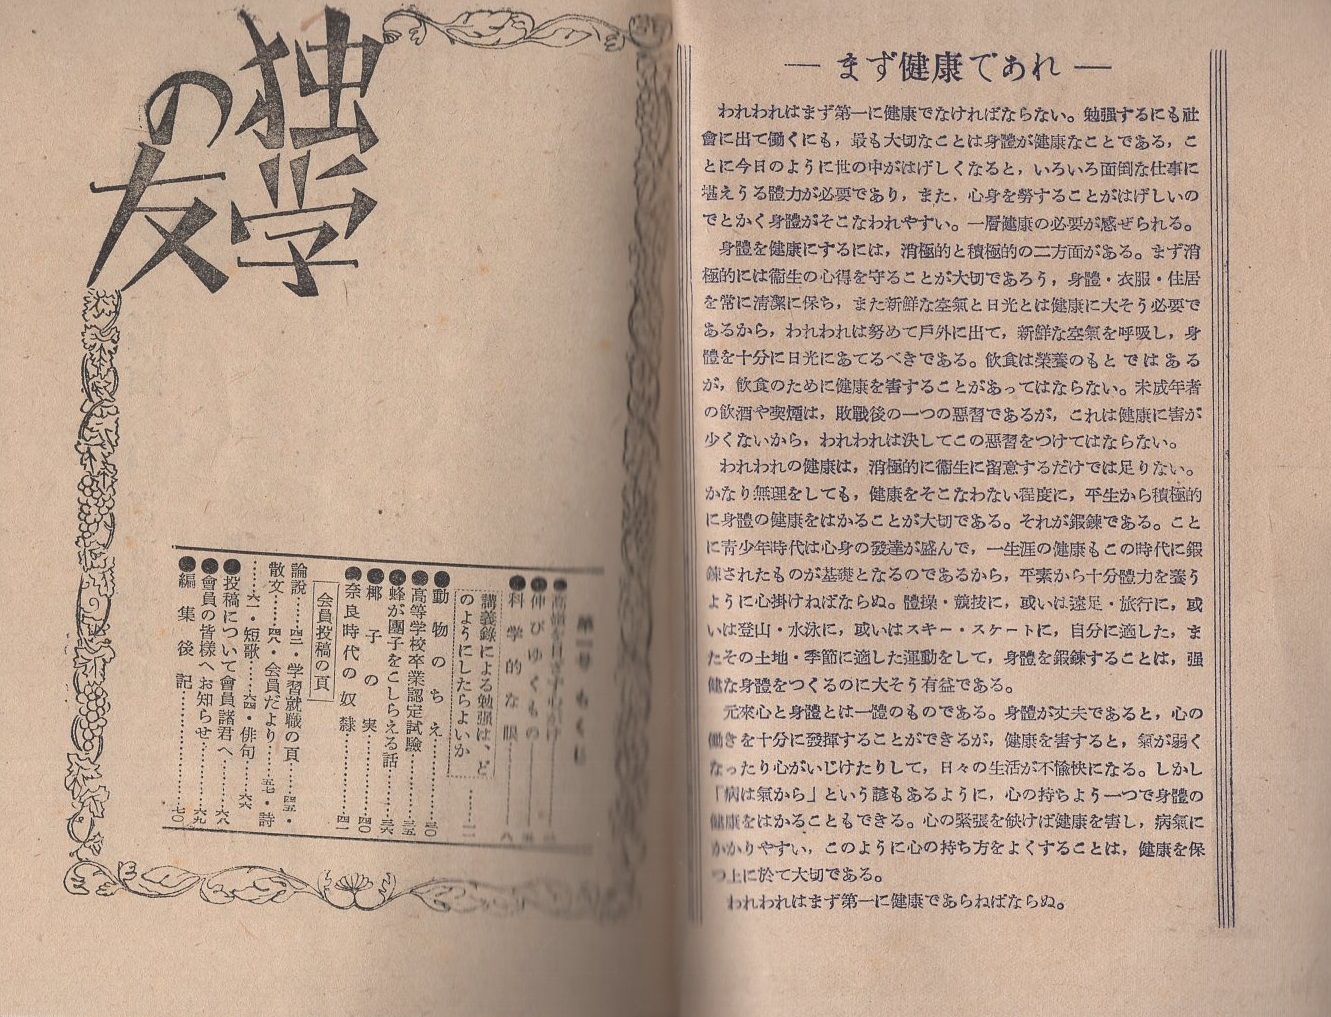 独学
の友
第一号 もくじ
●伸びゆくもの
●科学的な眼……八
講義録による勉强は、ど
のようにしたらよいか……一一
●動物のちえ……三〇
●高等学校卒業認定試驗……三五
●蜂が團子をこしらえる話……三六
●椰子の実……四〇
●奈良時代の奴隸……四一
会員投稿の頁
論説……四三・学習就職の頁……四五・
散文……四九・会員だより……五七・詩
……六一・短歌……六四・俳句……六六
●投稿について會員諸君へ……六八
●會員の皆様へお知らせ……六九
●編集後記……七〇
― まず健康であれ ―
われわれはまず第一に健康でなければならない。勉强するにも社
會に出て働くにも，最も大切なことは身體が健康なことである，こ
とに今日のように世の中がはげしくなると，いろいろ面倒な仕事に
堪えうる體力が必要であり，また，心身を勞することがはげしいの
でとかく身體がそこなわれやすい。一層健康の必要が感ぜられる。
身體を健康にするには，消極的と積極的の二方面がある。まず消
極的には衞生の心得を守ることが大切であろう，身體・衣服・住居
を常に淸潔に保ち，また新鮮な空氣と日光とは健康に大そう必要で
あるから，われわれは努めて戶外に出て，新鮮な空氣を呼吸し，身
體を十分に日光にあてるべきである。飮食は榮養のもとではある
が，飮食のために健康を害することがあってはならない。未成年者
の飮酒や喫煙は，敗戰後の一つの悪習であるが，これは健康に害が
少くないから，われわれは決してこの悪習をつけてはならない。
われわれの健康は，消極的に衞生に留意するだけでは足りない。
かなり無理をしても，健康をそこなわない程度に，平生から積極的
に身體の健康をはかることが大切である。それが鍛鍊である。こと
に靑少年時代は心身の發達が盛んで，一生涯の健康もこの時代に鍛
鍊されたものが基礎となるのであるから，平素から十分體力を養う
ように心掛けねばならぬ。體操・競技に，或いは遠足・旅行に，或
いは登山・水泳に，或いはスキー・スケートに，自分に適した，ま
たその土地・季節に適した運動をして，身體を鍛鍊することは，强
健な身體をつくるのに大そう有益である。
元來心と身體とは一體のものである。身體が丈夫であると，心の
働きを十分に發揮することができるが，健康を害すると，氣が弱く
なったり心がいじけたりして，日々の生活が不愉快になる。しかし
「病は氣から」という諺もあるように，心の持ちよう一つで身體の
健康をはかることもできる。心の緊張を缺けば健康を害し，病氣に
かかりやすい，このように心の持ち方をよくすることは，健康を保
つ上に於て大切である。
われわれはまず第一に健康であらねばならぬ。